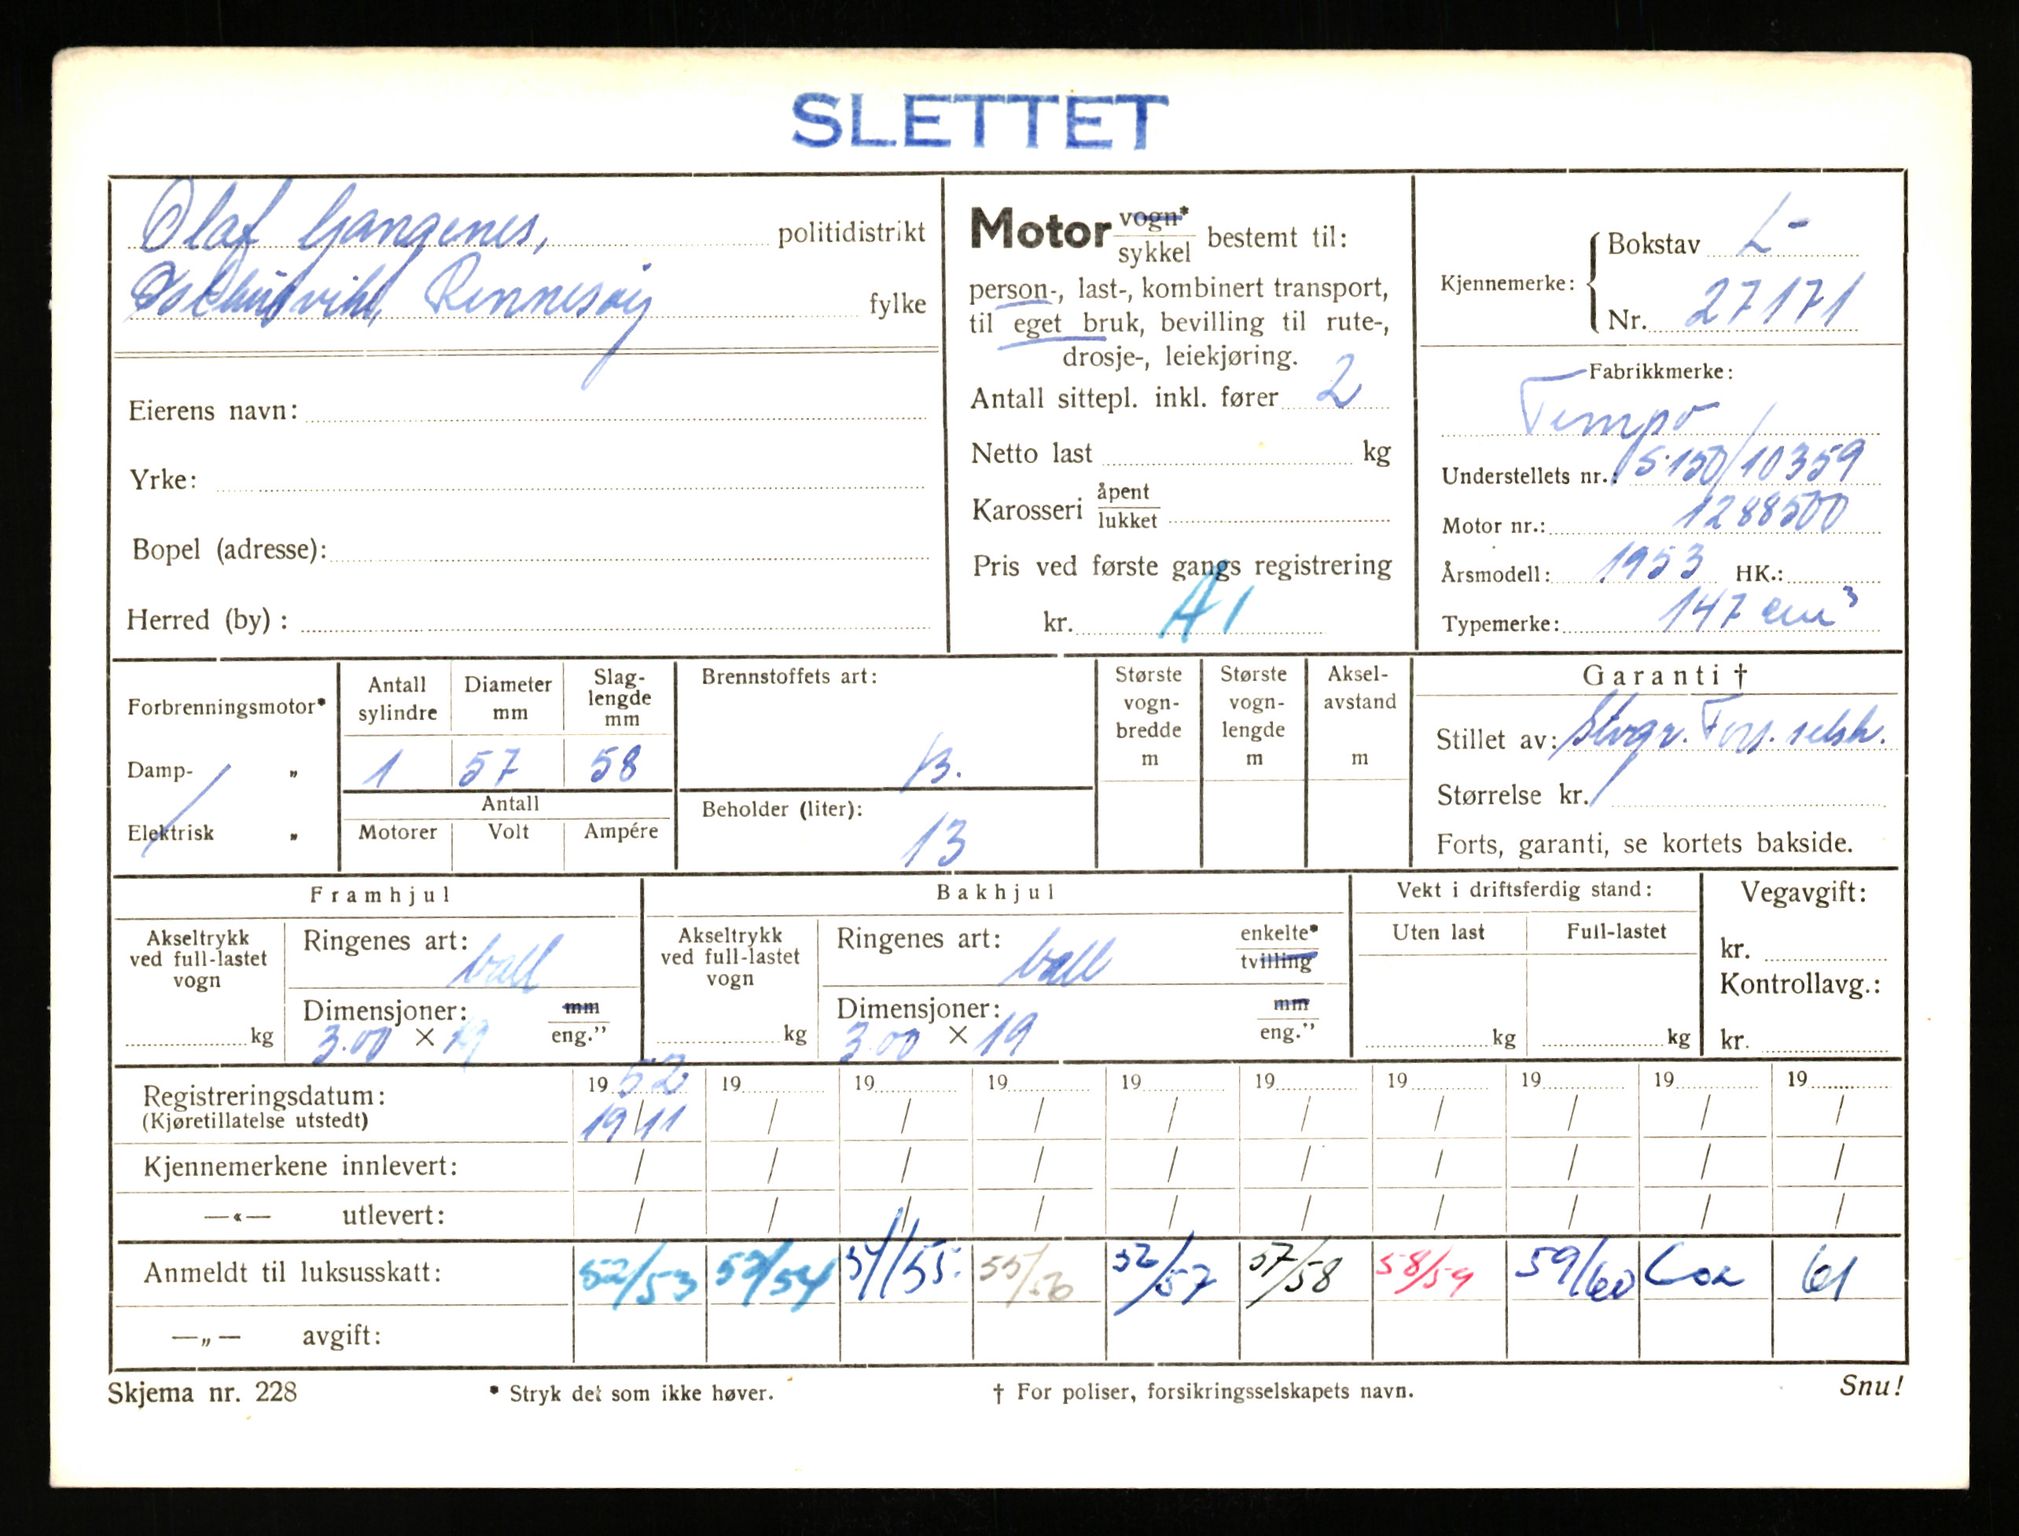 SLETTET
Olaf Gangenes, politidistrikt
Rennesøy fylke
Eierens navn:
Yrke:
Bopel (adresse):
Herred (by) :
Motor vogn* sykkel bestemt til:
person-, last-, kombinert transport,
til eget bruk, bevilling til rute-,
drosje-, leiekjøring.
Antall sittepl. inkl. fører 2
Netto last kg
Karosseri åpent lukket
Pris ved første gangs registrering
kr. A1
Kjennemerke: Bokstav L-
Nr. 27171
Fabrikkmerke:
Tempo
Understellets nr.: S.150/10359
Motor nr.: 1288500
Årsmodell: 1953 HK.:
Typemerke: 147 cm³
Forbrenningsmotor*
Damp- „
Elektrisk „
Antall sylindre Diameter mm Slag-lengde mm
1 57 58
Antall
Motorer Volt Ampére
Brennstoffets art:
B.
Beholder (liter):
13
Største vogn-bredde m
Største vogn-lengde m
Aksel-avstand m
Garanti †
Stillet av: Stvgr. Fors. selsk.
Størrelse kr.
Forts, garanti, se kortets bakside.
Framhjul
Akseltrykk ved full-lastet vogn
kg
Ringenes art: ball
Dimensjoner: mm eng.”
3.00 × 19
Bakhjul
Akseltrykk ved full-lastet vogn
kg
Ringenes art: ball enkelte* tvilling
Dimensjoner: mm eng.”
3.00 × 19
Vekt i driftsferdig stand:
Uten last Full-lastet
kg kg
Vegavgift:
kr.
Kontrollavg.:
kr.
Registreringsdatum: 1952 19 19 19 19 19 19 19 19 19
(Kjøretillatelse utstedt) 19/11 / / / / / / / / /
Kjennemerkene innlevert: / / / / / / / / / /
—«— utlevert: / / / / / / / / / /
Anmeldt til luksusskatt: 52/53 53/54 54/55. 55/56 /57 57/58 58/59 59/60 61
—„— avgift:
Skjema nr. 228 * Stryk det som ikke høver. † For poliser, forsikringsselskapets navn. Snu!